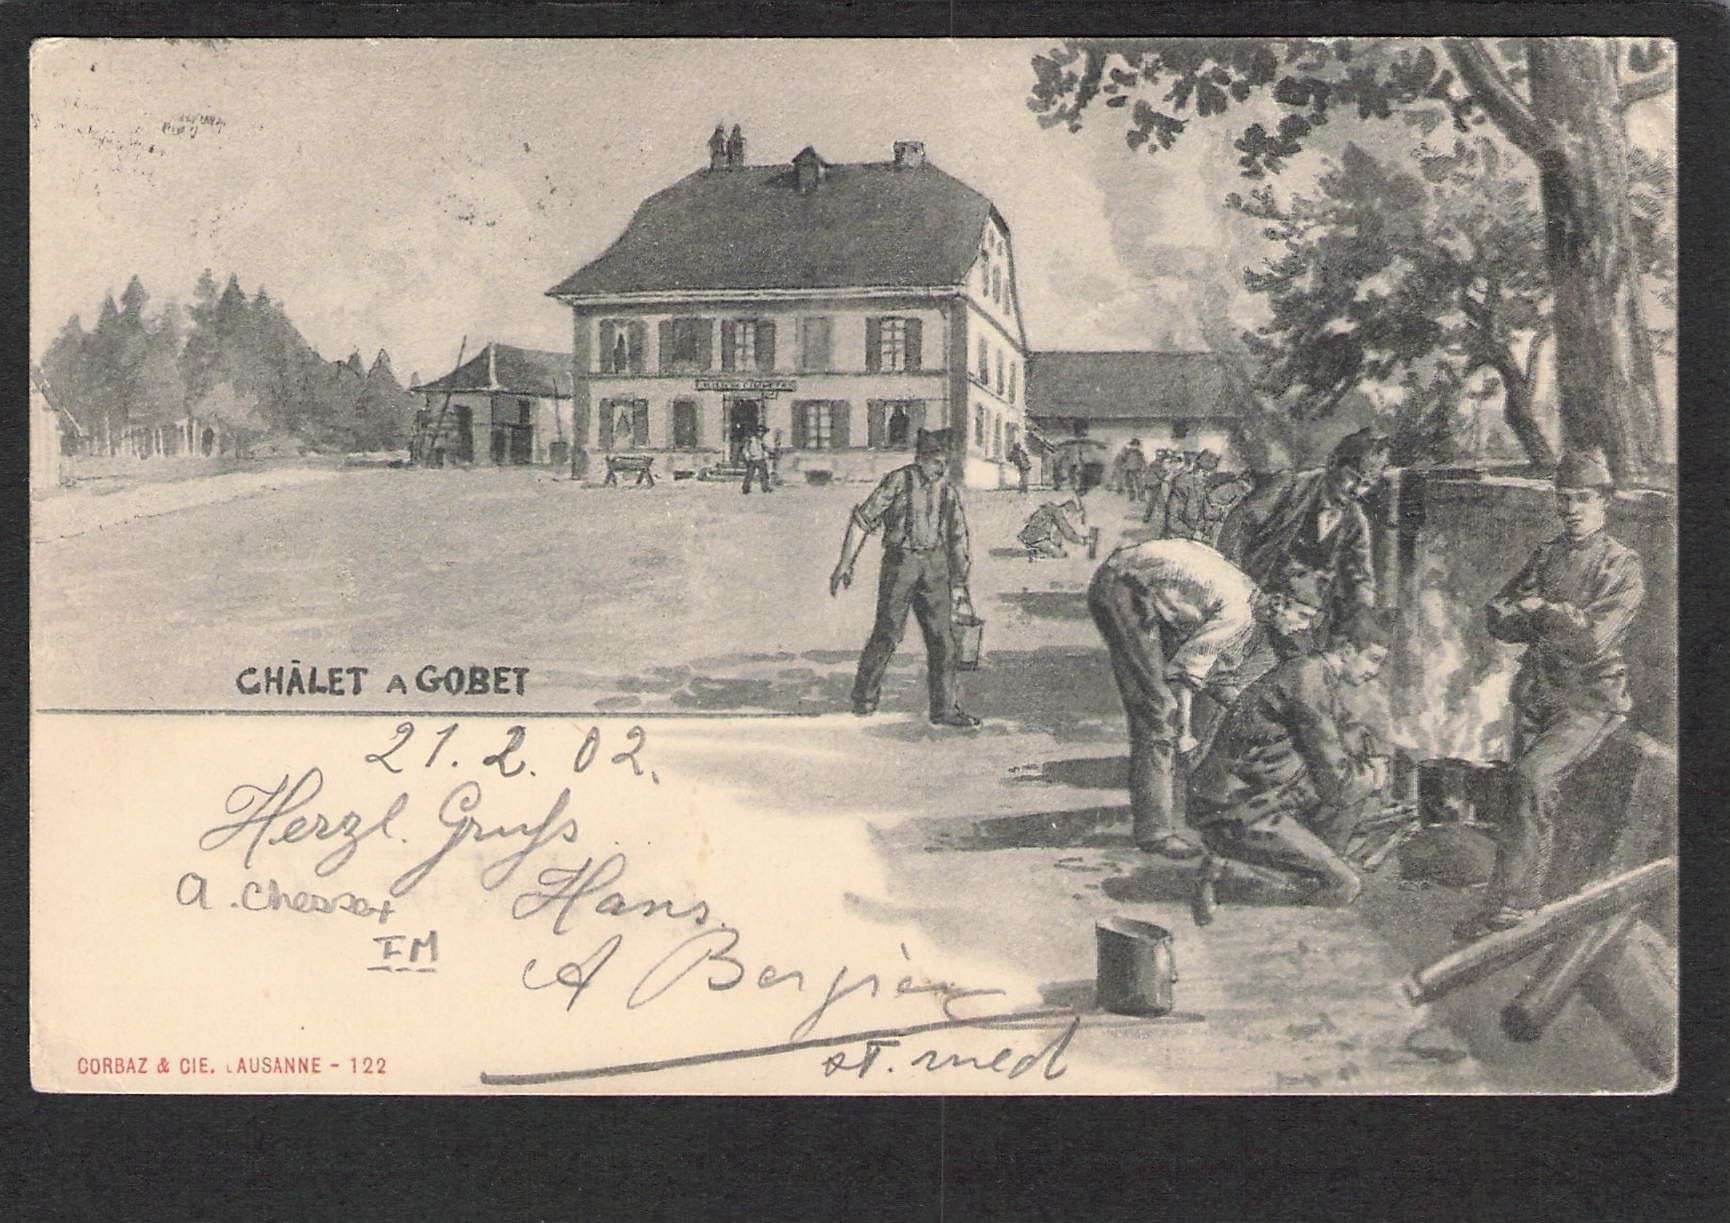 CHÂLET A GOBET
21. 2. 02.
Herzl. Gruß
Hans.
A. Chessex
I M
A Bergier
st. med
CORBAZ & CIE. LAUSANNE - 122